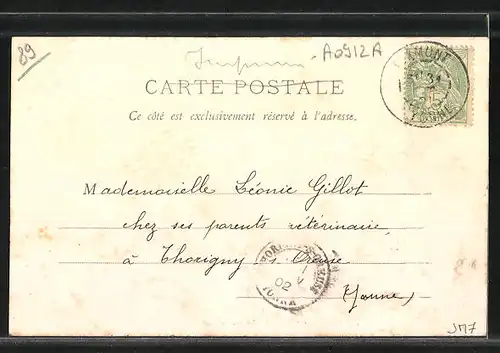 89
Imprimé
A0912A
CARTE POSTALE
Ce côté est exclusivement réservé à l'adresse.
Mademoiselle Léonie Gillot
chez ses parents vétérinaire,
à Thorigny s/s Oreuse
(Yonne)
02
YONNE
JM7